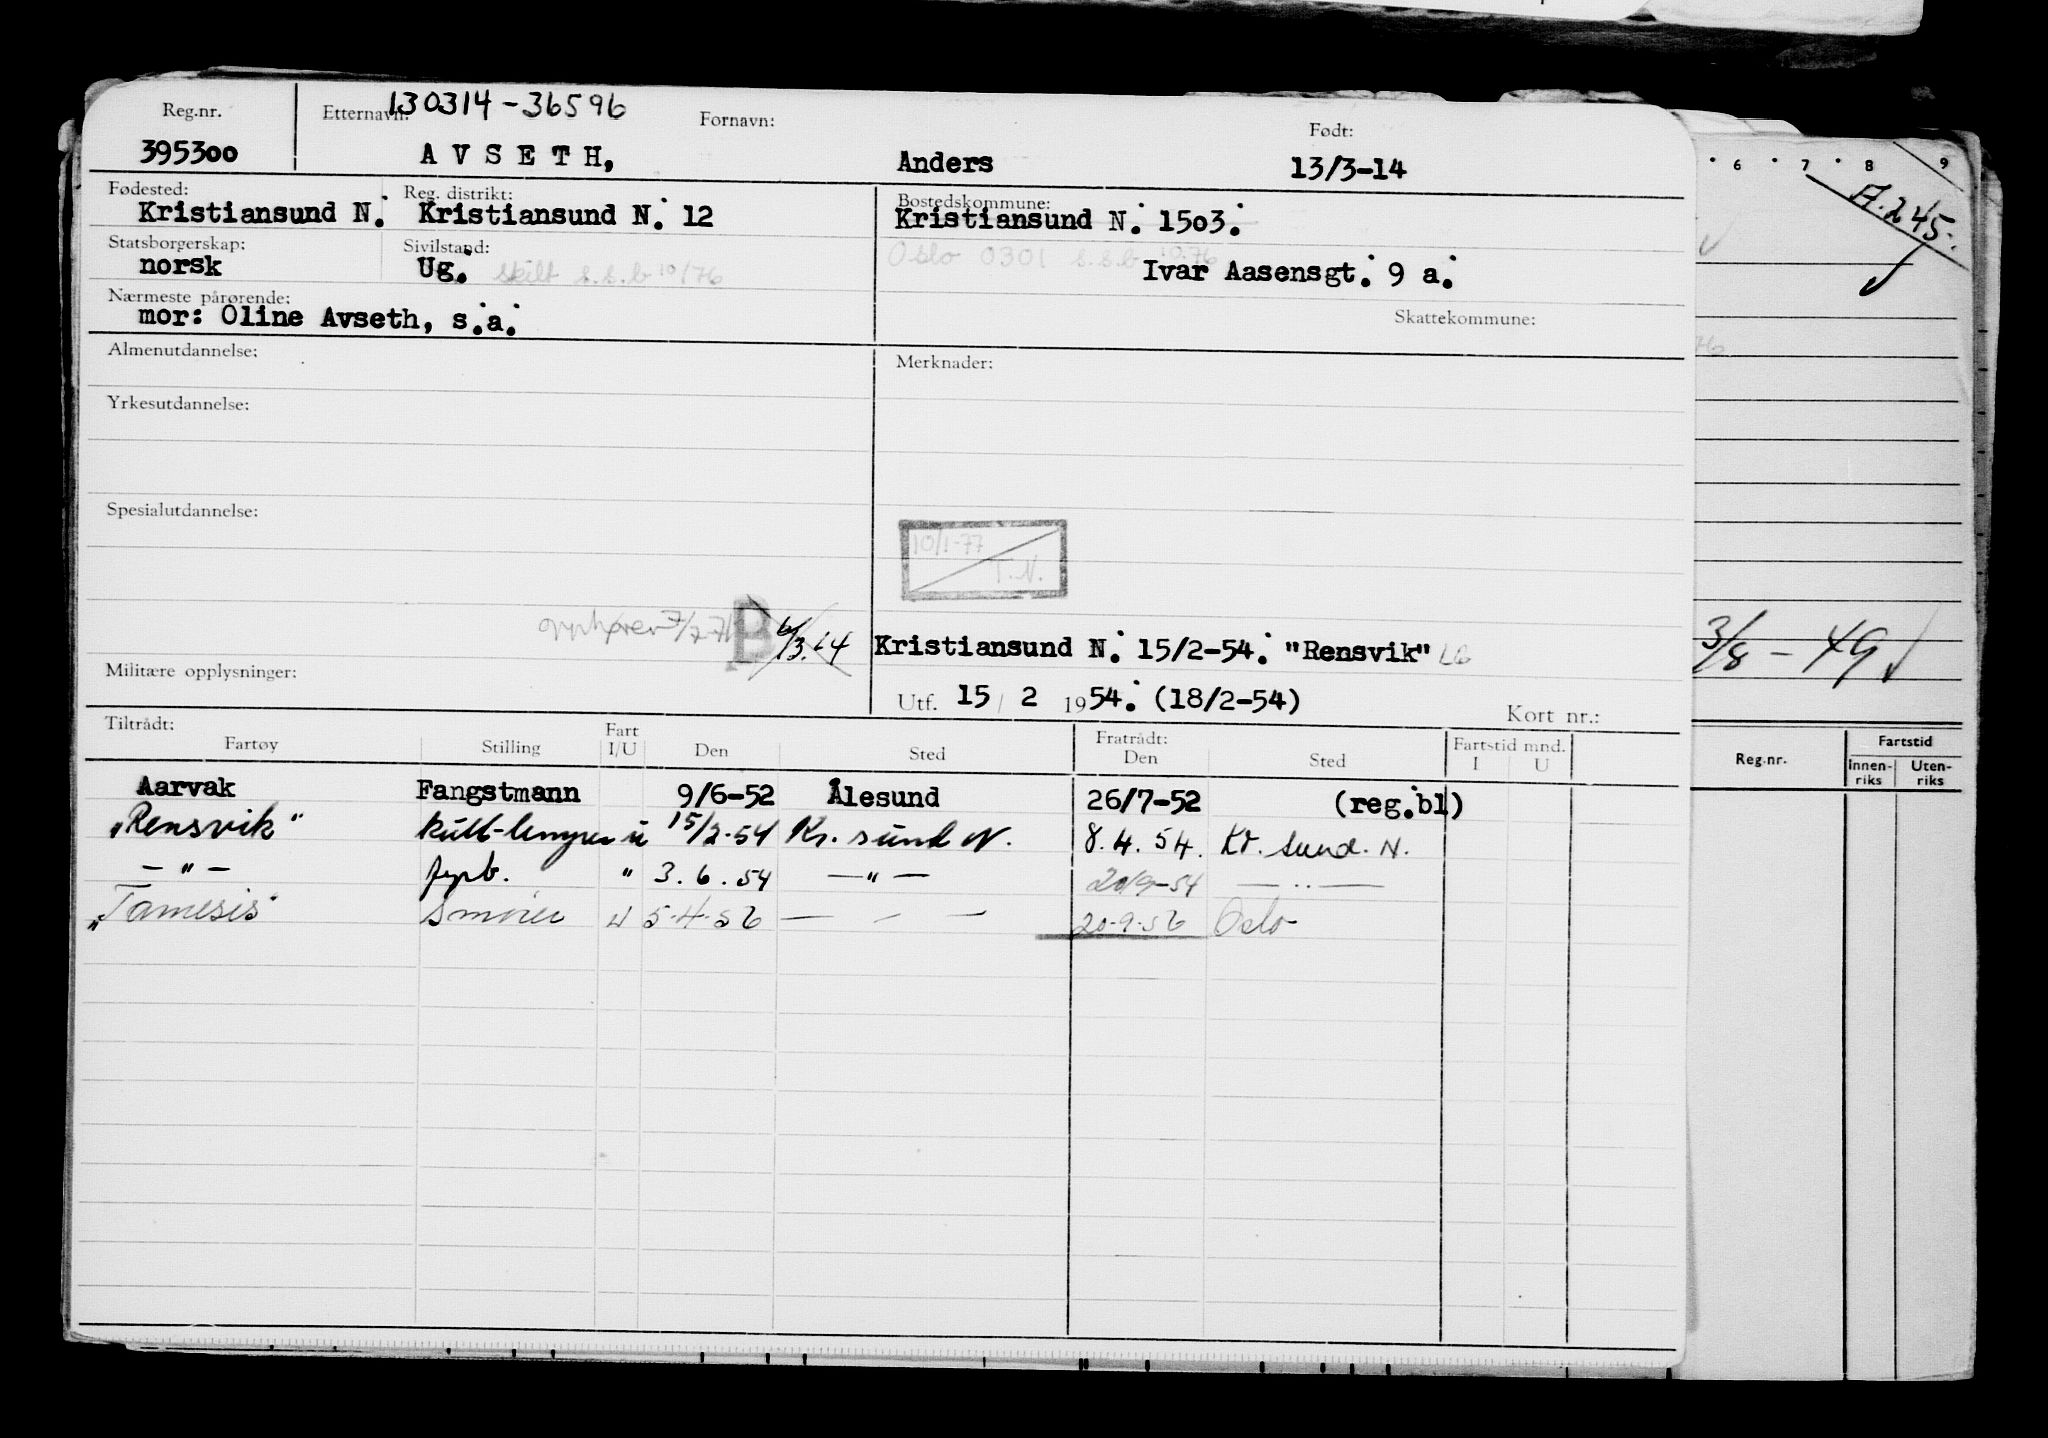 Reg.nr. Etternavn: 130314-36596 Fornavn: Født:
395300 AVSETH, Anders 13/3-14
Fødested: Reg. distrikt: Bostedskommune:
Kristiansund N. Kristiansund N. 12 Kristiansund N. 1503.
Statsborgerskap: Sivilstand: Oslo 0301 s.s.b 10.76
norsk Ug. skilt s.s.b 10/76 Ivar Aasensgt. 9 a.
Nærmeste pårørende: Skattekommune:
mor: Oline Avseth, s.a.
Almenutdannelse: Merknader:
Yrkesutdannelse:
Spesialutdannelse:
10/1-77
T.N.
opphører 7/7-71 B 6/3.64
Kristiansund N. 15/2-54. "Rensvik" LG
Militære opplysninger: Utf. 15/2 1954. (18/2-54)
Kort nr.:
Tiltrådt: Fart Fratrådt: Fartstid mnd.
Fartøy Stilling I/U Den Sted Den Sted I U
Aarvak Fangstmann 9/6-52 Ålesund 26/7-52 (reg.bl)
"Rensvik" kull-lemper u 15/2-54 Kr. sund N. 8.4.54. Kr. sund. N.
— " — fyrb. " 3.6.54 — " — 20/9-54 — " —
"Tamesis" Smører u 5-4-56 — " — 20-9-56 Oslo
6 7 8 9
A.245.
3/8-49
Reg.nr. Fartstid
Innen-riks Uten-riks